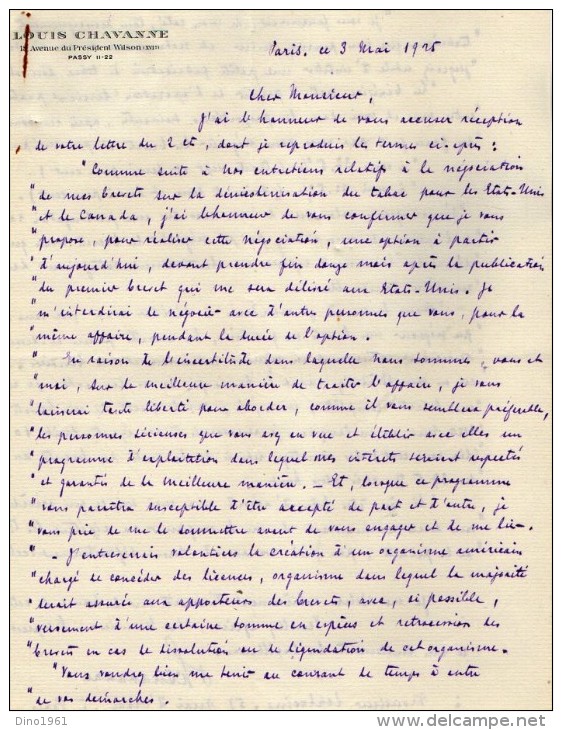 LOUIS CHAVANNE
12 Avenue du Président Wilson (XVIe)
PASSY 11-22
Paris, ce 3 Mai 1925
Cher Monsieur,
J'ai l'honneur de vous accuser réception
de votre lettre du 2 ct, dont je reproduis les termes ci-après :
"Comme suite à nos entretiens relatifs à la négociation
"de mes brevets sur la dénicotinisation du tabac pour les Etats-Unis
"et le Canada, j'ai l'honneur de vous confirmer que je vous
"propose, pour réaliser cette négociation, une option à partir
"d'aujourd'hui, devant prendre fin douze mois après la publication
"du premier brevet qui me sera délivré aux Etats-Unis. Je
"m'interdirai de négocier avec d'autres personnes que vous, pour la
"même affaire, pendant la durée de l'option.
"En raison de l'incertitude dans laquelle nous sommes, vous et
"moi, sur la meilleure manière de traiter l'affaire, je vous
"laisserai toute liberté pour aborder, comme il vous semblera préférable,
"les personnes sérieuses que vous avez en vue et établir avec elles un
"programme d'exploitation dans lequel mes intérêts seraient respectés
"et garantis de la meilleure manière. — Et, lorsque ce programme
"vous paraîtra susceptible d'être accepté de part et d'autre, je
"vous prie de me le soumettre avant de vous engager et de me lier.
" - J'entreverrais volontiers la création d'un organisme américain
"chargé de concéder des licences, organisme dans lequel la majorité
"serait assurée aux apporteurs des brevets, avec, si possible,
"versement d'une certaine somme en espèces et rétrocession des
"brevets en cas de dissolution ou de liquidation de cet organisme.
"Vous voudrez bien me tenir au courant de temps à autre
"de vos démarches.
Dino1961
www.delcampe.net